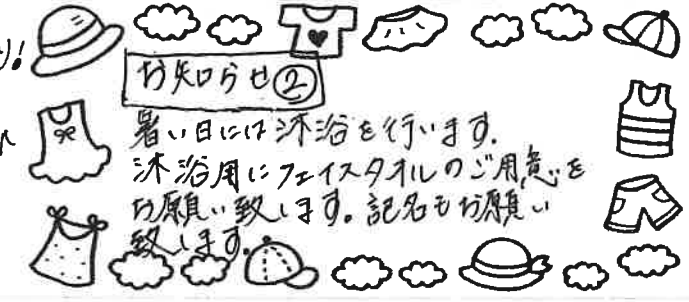 お知らせ②
暑い日には沐浴を行います。
沐浴用にフェイスタオルのご用意を
お願い致します。記名もお願い
致します。